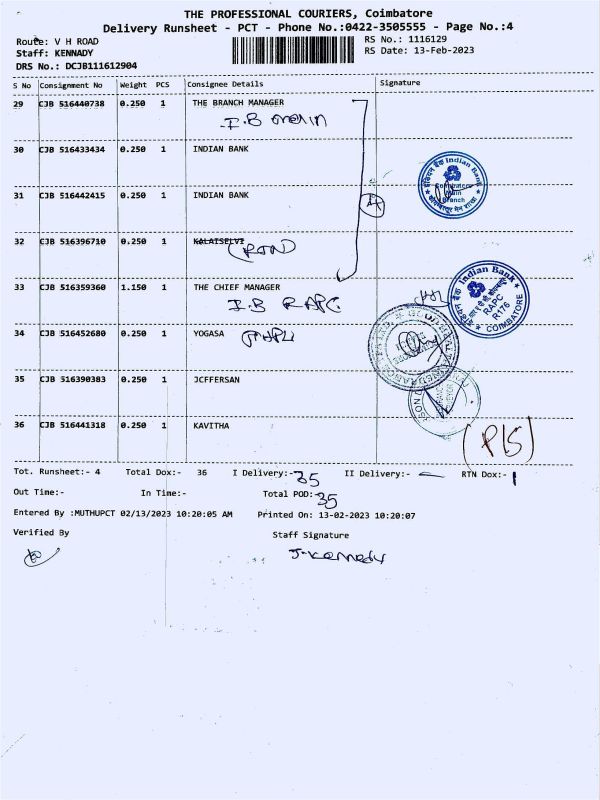 THE PROFESSIONAL COURIERS, Coimbatore
Delivery Runsheet - PCT - Phone No.:0422-3505555 - Page No.:4
Route: V H ROAD
RS No.: 1116129
Staff: KENNADY
RS Date: 13-Feb-2023
DRS No.: DCJB111612904
S No Consignment No Weight PCS Consignee Details Signature
29 CJB 516440738 0.250 1 THE BRANCH MANAGER
I.B main
30 CJB 516433434 0.250 1 INDIAN BANK
Indian Bank
Coimbatore
Main
Branch
31 CJB 516442415 0.250 1 INDIAN BANK
32 CJB 516396710 0.250 1 KALAISELVI
(RTN)
33 CJB 516359360 1.150 1 THE CHIEF MANAGER
I.B RAPC
Indian Bank
RAPC
R176
COIMBATORE
34 CJB 516452680 0.250 1 YOGASA
35 CJB 516390383 0.250 1 JCFFERSAN
36 CJB 516441318 0.250 1 KAVITHA
(P15)
Tot. Runsheet:- 4 Total Dox:- 36 I Delivery:- 35 II Delivery:- RTN Dox:- 1
Out Time:- In Time:- Total POD:- 35
Entered By :MUTHUPCT 02/13/2023 10:20:05 AM Printed On: 13-02-2023 10:20:07
Verified By Staff Signature
J-Kennedy